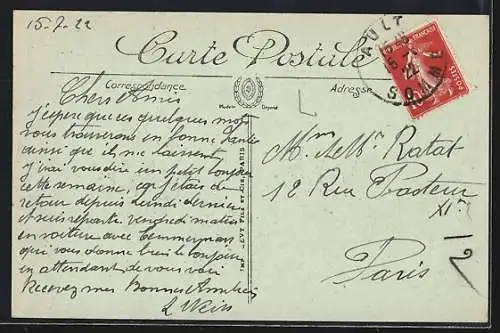 15-7-22
Carte Postale
Correspondance
Adresse
Modèle Déposé
AULT
SOMME
22
POSTES
Chers Amis
j'espère que ces quelques mots
vous trouverons en bonne Santé
ainsi que ils me laissent
j'irai vous dire un petit bonjour
cette semaine, car j'étais de
retour depuis Lundi dernier
et suis repartie vendredi matin
en voiture avec
qui vous donne bien le bonjour
en attendant de vous voir
Recevez mes Bonnes Amitiés
L
LEVY FILS ET CIE PARIS
Mr et Me Ratat
12 Rue Pasteur
XIe
Paris